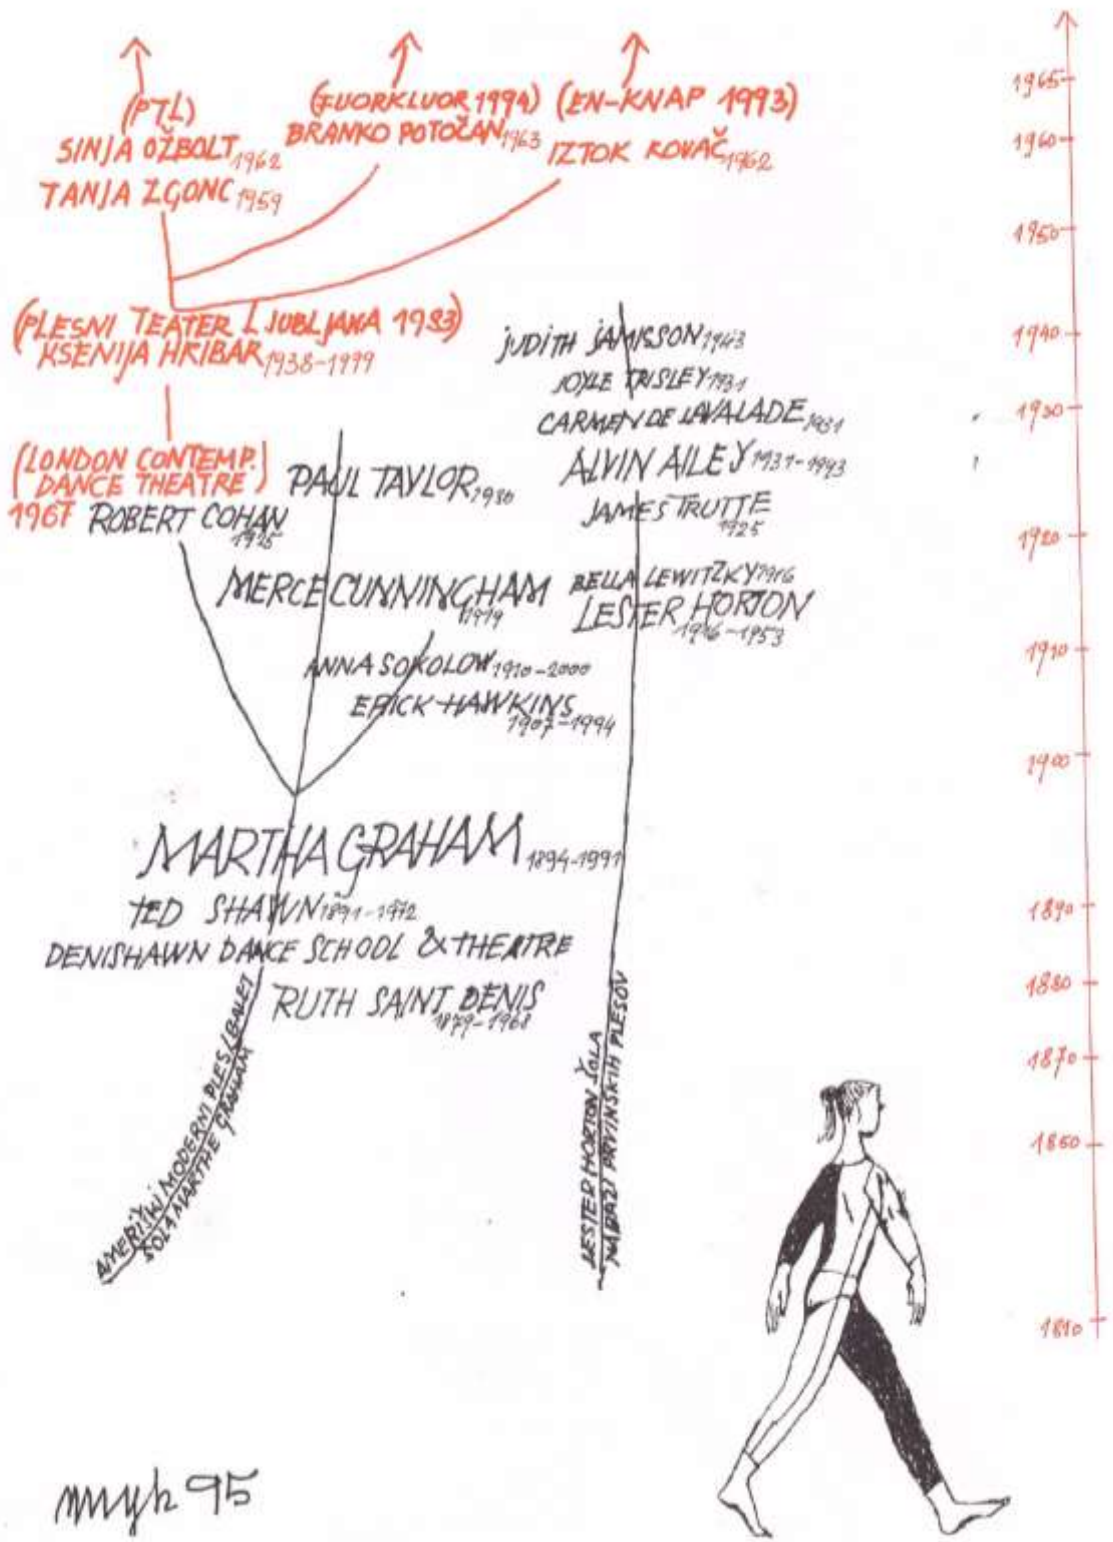 (PTL)
SINJA OŽBOLT 1962
TANJA ZGONC 1959
(FUORKLUOR 1994)
BRANKO POTOČAN 1963
(EN-KNAP 1993)
IZTOK KOVAČ 1962
(PLESNI TEATER LJUBLJANA 1983)
KSENIJA HRIBAR 1938-1999
(LONDON CONTEMP.
DANCE THEATRE)
1967 ROBERT COHAN
1925
PAUL TAYLOR 1930
MERCE CUNNINGHAM
1919
ANNA SOKOLOW 1910-2000
ERICK HAWKINS
1907-1994
MARTHA GRAHAM 1894-1991
TED SHAWN 1891-1972
DENISHAWN DANCE SCHOOL & THEATRE
RUTH SAINT DENIS
1879-1968
AMERIŠKI MODERNI PLES/BALET
ŠOLA MARTHE GRAHAM
JUDITH JAMISSON 1943
JOYLE TRISLEY 1931
CARMEN DE LAVALADE 1931
ALVIN AILEY 1931-1993
JAMES TRUTTE
1925
BELLA LEWITZKY 1916
LESTER HORTON
1906-1953
LESTER HORTON ŠOLA
NA BAZI PRVINSKIH PLESOV
1965
1960
1950
1940
1930
1920
1910
1900
1890
1880
1870
1860
1810
95